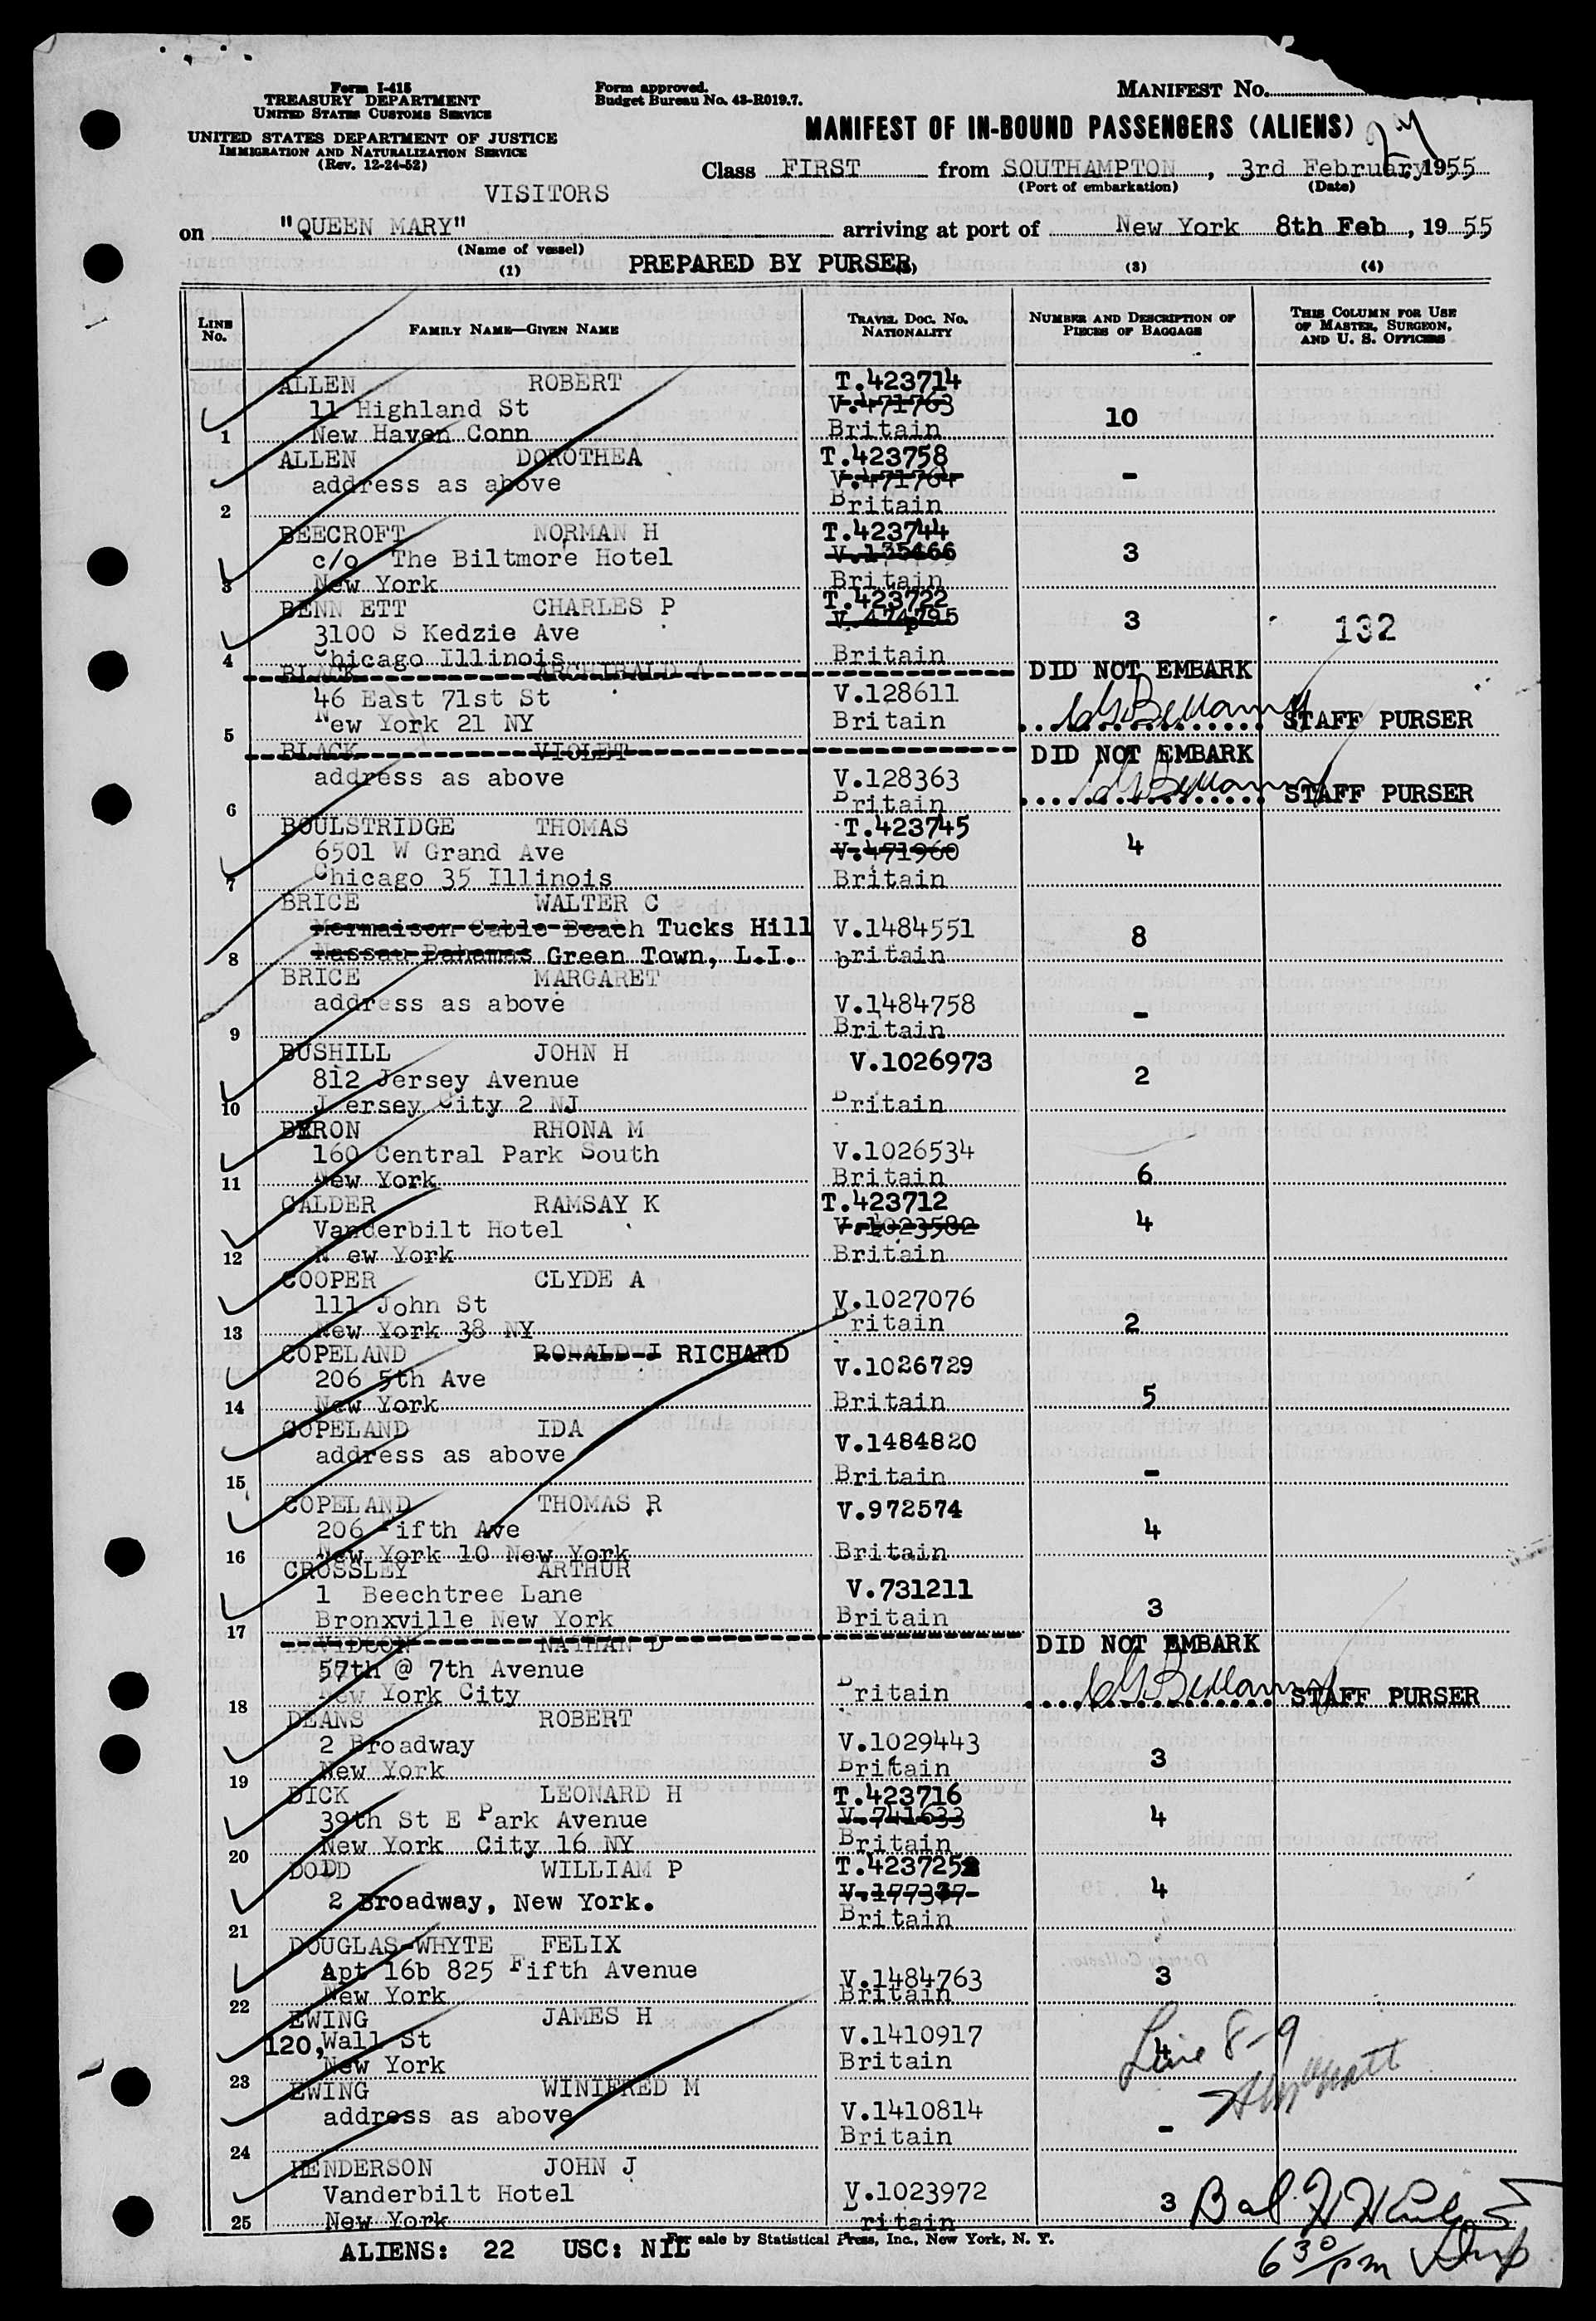 Form I-415
TREASURY DEPARTMENT
UNITED STATES CUSTOMS SERVICE
UNITED STATES DEPARTMENT OF JUSTICE
IMMIGRATION AND NATURALIZATION SERVICE
(Rev. 12-24-52)
Form approved.
Budget Bureau No. 43-R019.7.
MANIFEST No.
MANIFEST OF IN-BOUND PASSENGERS (ALIENS)
Class FIRST from SOUTHAMPTON, 3rd February, 1955
(Port of embarkation) (Date)
VISITORS
on "QUEEN MARY" arriving at port of New York 8th Feb, 1955
(Name of vessel)
(1) PREPARED BY PURSER (3) (4)
LINE No. FAMILY NAME—GIVEN NAME TRAVEL DOC. NO. NATIONALITY NUMBER AND DESCRIPTION OF PIECES OF BAGGAGE THIS COLUMN FOR USE OF MASTER, SURGEON, AND U. S. OFFICERS
ALLEN ROBERT T.423714
11 Highland St V.471763 10
1 New Haven Conn Britain
ALLEN DOROTHEA T.423758
address as above V.471764 -
2 Britain
BEECROFT NORMAN H T.423744
c/o The Biltmore Hotel V.135466 3
3 New York Britain
BENN ETT CHARLES P T.423722
3100 S Kedzie Ave V.474795 3 132
4 Chicago Illinois Britain
BLACK ARCHIBALD A DID NOT EMBARK
46 East 71st St V.128611
5 New York 21 NY Britain STAFF PURSER
BLACK VIOLET DID NOT EMBARK
address as above V.128363
6 Britain STAFF PURSER
BOULSTRIDGE THOMAS T.423745
6501 W Grand Ave V.471960 4
7 Chicago 35 Illinois Britain
BRICE WALTER C
Mermaison Cable Beach Tucks Hill V.1484551 8
8 Nassau Bahamas Green Town, L.I. britain
BRICE MARGARET
address as above V.1484758 -
9 Britain
BUSHILL JOHN H V.1026973
812 Jersey Avenue 2
10 J ersey City 2 NJ Britain
BYRON RHONA M
160 Central Park South V.1026534
11 New York Britain 6
CALDER RAMSAY K T.423712
Vanderbilt Hotel V.1023582 4
12 N ew York Britain
COOPER CLYDE A
111 John St V.1027076
13 New York 38 NY Britain 2
COPELAND RONALD I RICHARD
206 5th Ave V.1026729
14 New York Britain 5
COPELAND IDA
address as above V.1484820
15 Britain -
COPELAND THOMAS R V.972574
206 Fifth Ave 4
16 New York 10 New York Britain
CROSSLEY ARTHUR
1 Beechtree Lane V.731211
17 Bronxville New York Britain 3
DAVIDSON NATHAN D DID NOT EMBARK
57th @ 7th Avenue
18 New York City Britain STAFF PURSER
DEANS ROBERT
2 Broadway V.1029443
19 New York Britain 3
DICK LEONARD H T.423716
39th St E Park Avenue V.741633 4
20 New York City 16 NY Britain
DODD WILLIAM P T.423725
2 Broadway, New York. V.177377 4
21 Britain
DOUGLAS-WHYTE FELIX
Apt 16b 825 Fifth Avenue V.1484763 3
22 New York Britain
EWING JAMES H
120, Wall St V.1410917 4 Line 8-9
23 New York Britain
EWING WINIFRED M
address as above V.1410814 -
24 Britain
HENDERSON JOHN J
Vanderbilt Hotel V.1023972 3 Bal
25 New York Britain
For sale by Statistical Press, Inc., New York, N. Y.
ALIENS: 22 USC: NIL
6 30/pm